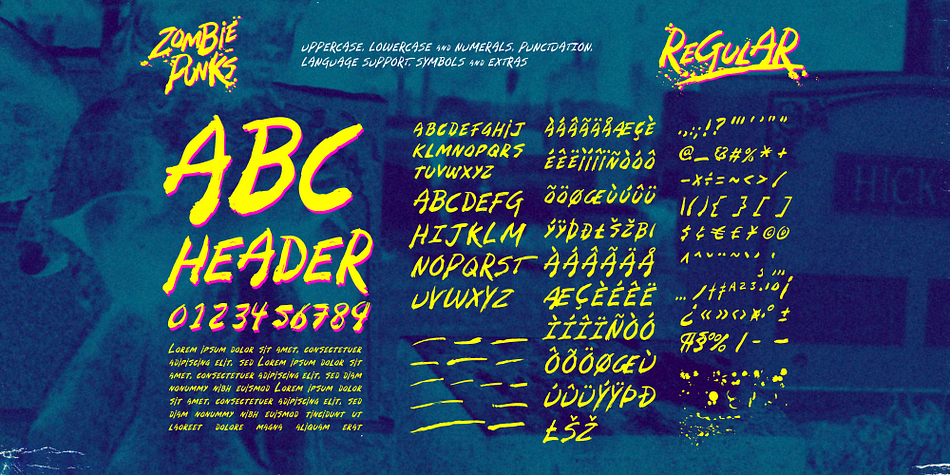 ZOMBiE
PUNKS
UPPERCASE, LOWERCASE AND NUMERALS, PUNCTUATION,
LANGUAGE SUPPORT, SYMBOLS AND EXTRAS
REGULAR
ABC
HEADER
0123456789
LOREM IPSUM DOLOR SIT AMET, CONSECTETUER
ADIPISCING ELIT, SED LOREM IPSUM DOLOR SIT
AMET, CONSECTETUER ADIPISCING ELIT, SED DIAM
NONUMMY NIBH EUISMOD LOREM IPSUM DOLOR SIT
AMET, CONSECTETUER ADIPISCING ELIT, SED
DIAM NONUMMY NIBH EUISMOD TINCIDUNT UT
LAOREET DOLORE MAGNA ALIQUAM ERAT
ABCDEFGHIJ
KLMNOPQRS
TUVWXYZ
ABCDEFG
HIJKLM
NOPQRST
UVWXYZ
ÀÁÂÃÄÅÆÇÈ
ÉÊËÌÍÎÏÑÒÓÔ
ÕÖØŒÙÚÛÜ
ÝŸÞÐŁŠŽBI
ÀÁÂÃÄÅ
ÆÇÈÉÊË
ÌÍÎÏÑÒÓ
ÔÕÖØŒÙ
ÚÛÜÝŸÞÐ
ŁŠŽ
@_&#%*+
−×÷=~<>/
|\(){ } [ ]
$¢€£¥©®
¿«»‹›¤•°±
¶§º% / – —
HICKS